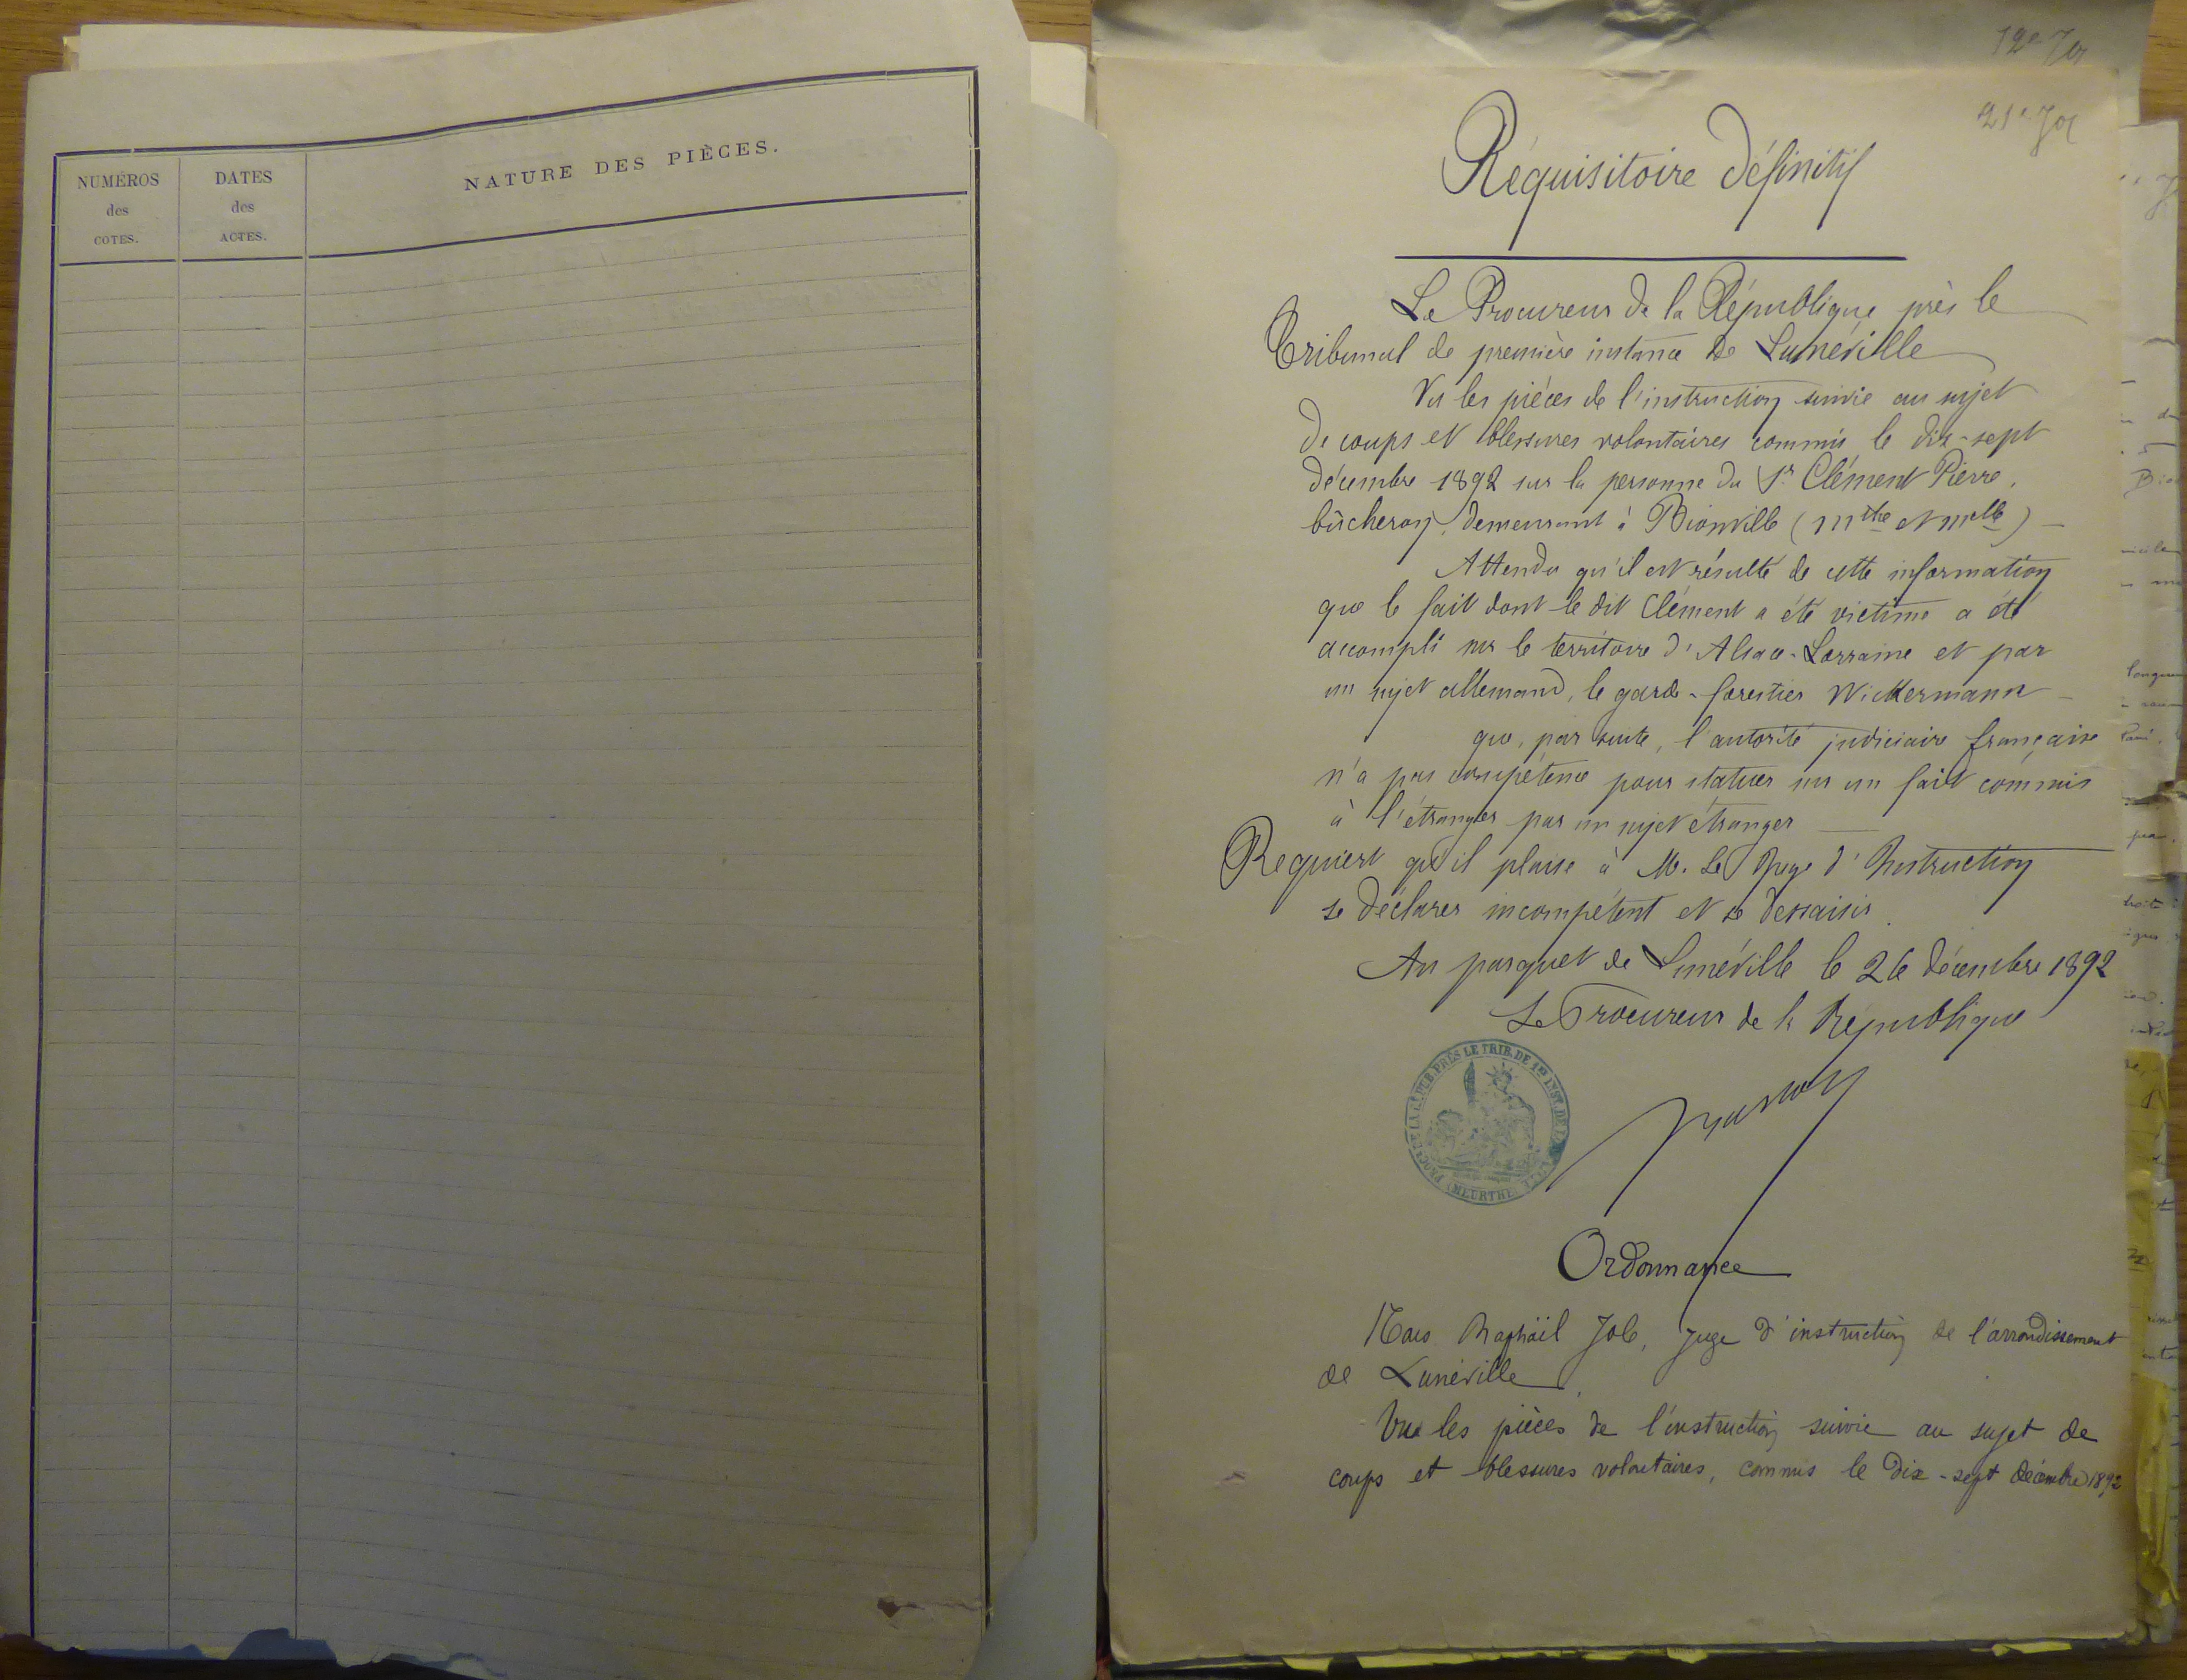 NUMÉROS
des
COTES.
DATES
des
ACTES.
NATURE DES PIÈCES.
Réquisitoire Définitif
Le Procureur de la République près le
Tribunal de première instance de Lunéville
Vu les pièces de l'instruction suivie au sujet
de coups et blessures volontaires commis le dix-sept
décembre 1892 sur la personne du Sr Clément Pierre,
bûcheron, demeurant à Bionville (Mthe et Mlle)
Attendu qu'il est résulté de cette information
que le fait dont le dit Clément a été victime a été
accompli sur le territoire d'Alsace-Lorraine et par
un sujet allemand, le garde-forestier Wickermann
que, par suite, l'autorité judiciaire française
n'a pas compétence pour statuer sur un fait commis
à l'étranger par un sujet étranger
Requiert qu'il plaise à M. Le Juge d'Instruction
se déclarer incompétent et se dessaisir.
Au parquet de Lunéville le 26 décembre 1892
Le Procureur de la République
PROCR DE LA RÉPUB. PRÈS LE TRIB. DE 1RE INST. DE
(MEURTHE
Ordonnance
Nous Raphaël Job, Juge d'instruction de l'arrondissement
de Lunéville,
Vu les pièces de l'instruction suivie au sujet de
coups et blessures volontaires, commis le dix-sept décembre 1892